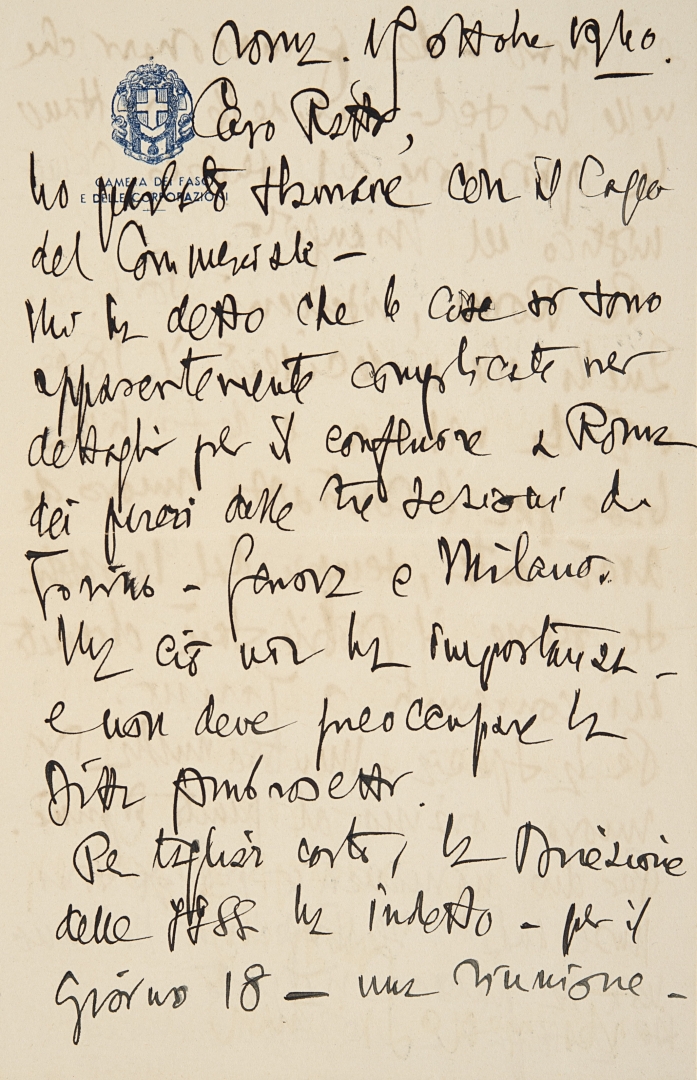 Roma. 15 ottobre 1940.
Caro Ratti,
CAMERA DEI FASCI
E DELLE CORPORAZIONI
ho parlato stamane con il Capo
del Commerciale –
Mi ha detto che le cose si sono
apparentemente complicate nei
dettagli per il confluire a Roma
dei pareri delle tre sezioni di
Torino – Genova e Milano.
Ma ciò non ha importanza –
e non deve preoccupare la
Ditta Ambrosetti.
Per tagliar corto, la Direzione
delle FFSS ha indetto – per il
giorno 18 – una riunione –